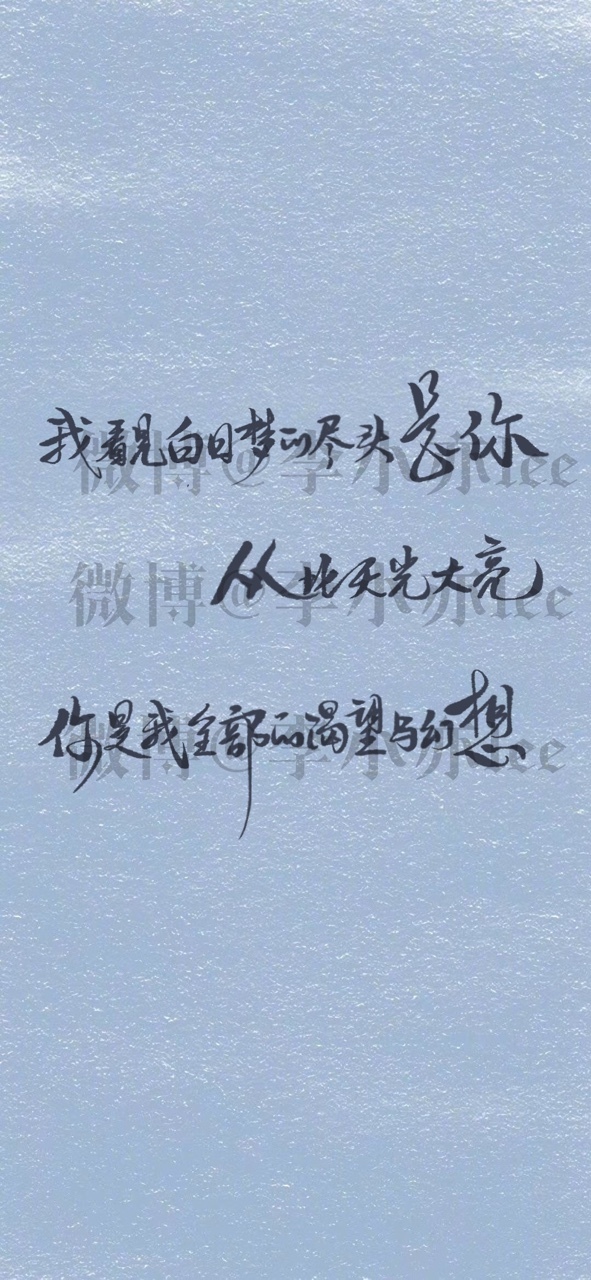 我看见白日梦的尽头是你
微博@李小亦lee
从此天光大亮
微博@李小亦lee
你是我全部的渴望与幻想
微博@李小亦lee